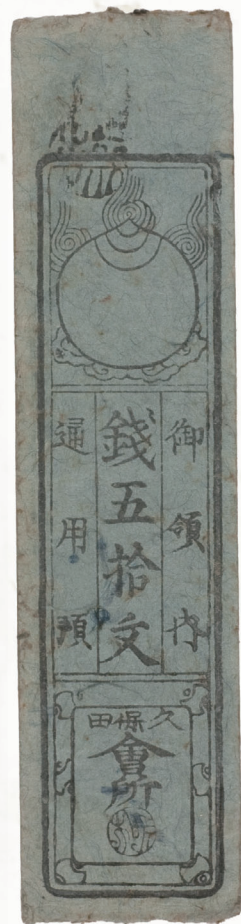 御領内
錢五拾文
通用
久保田
會所